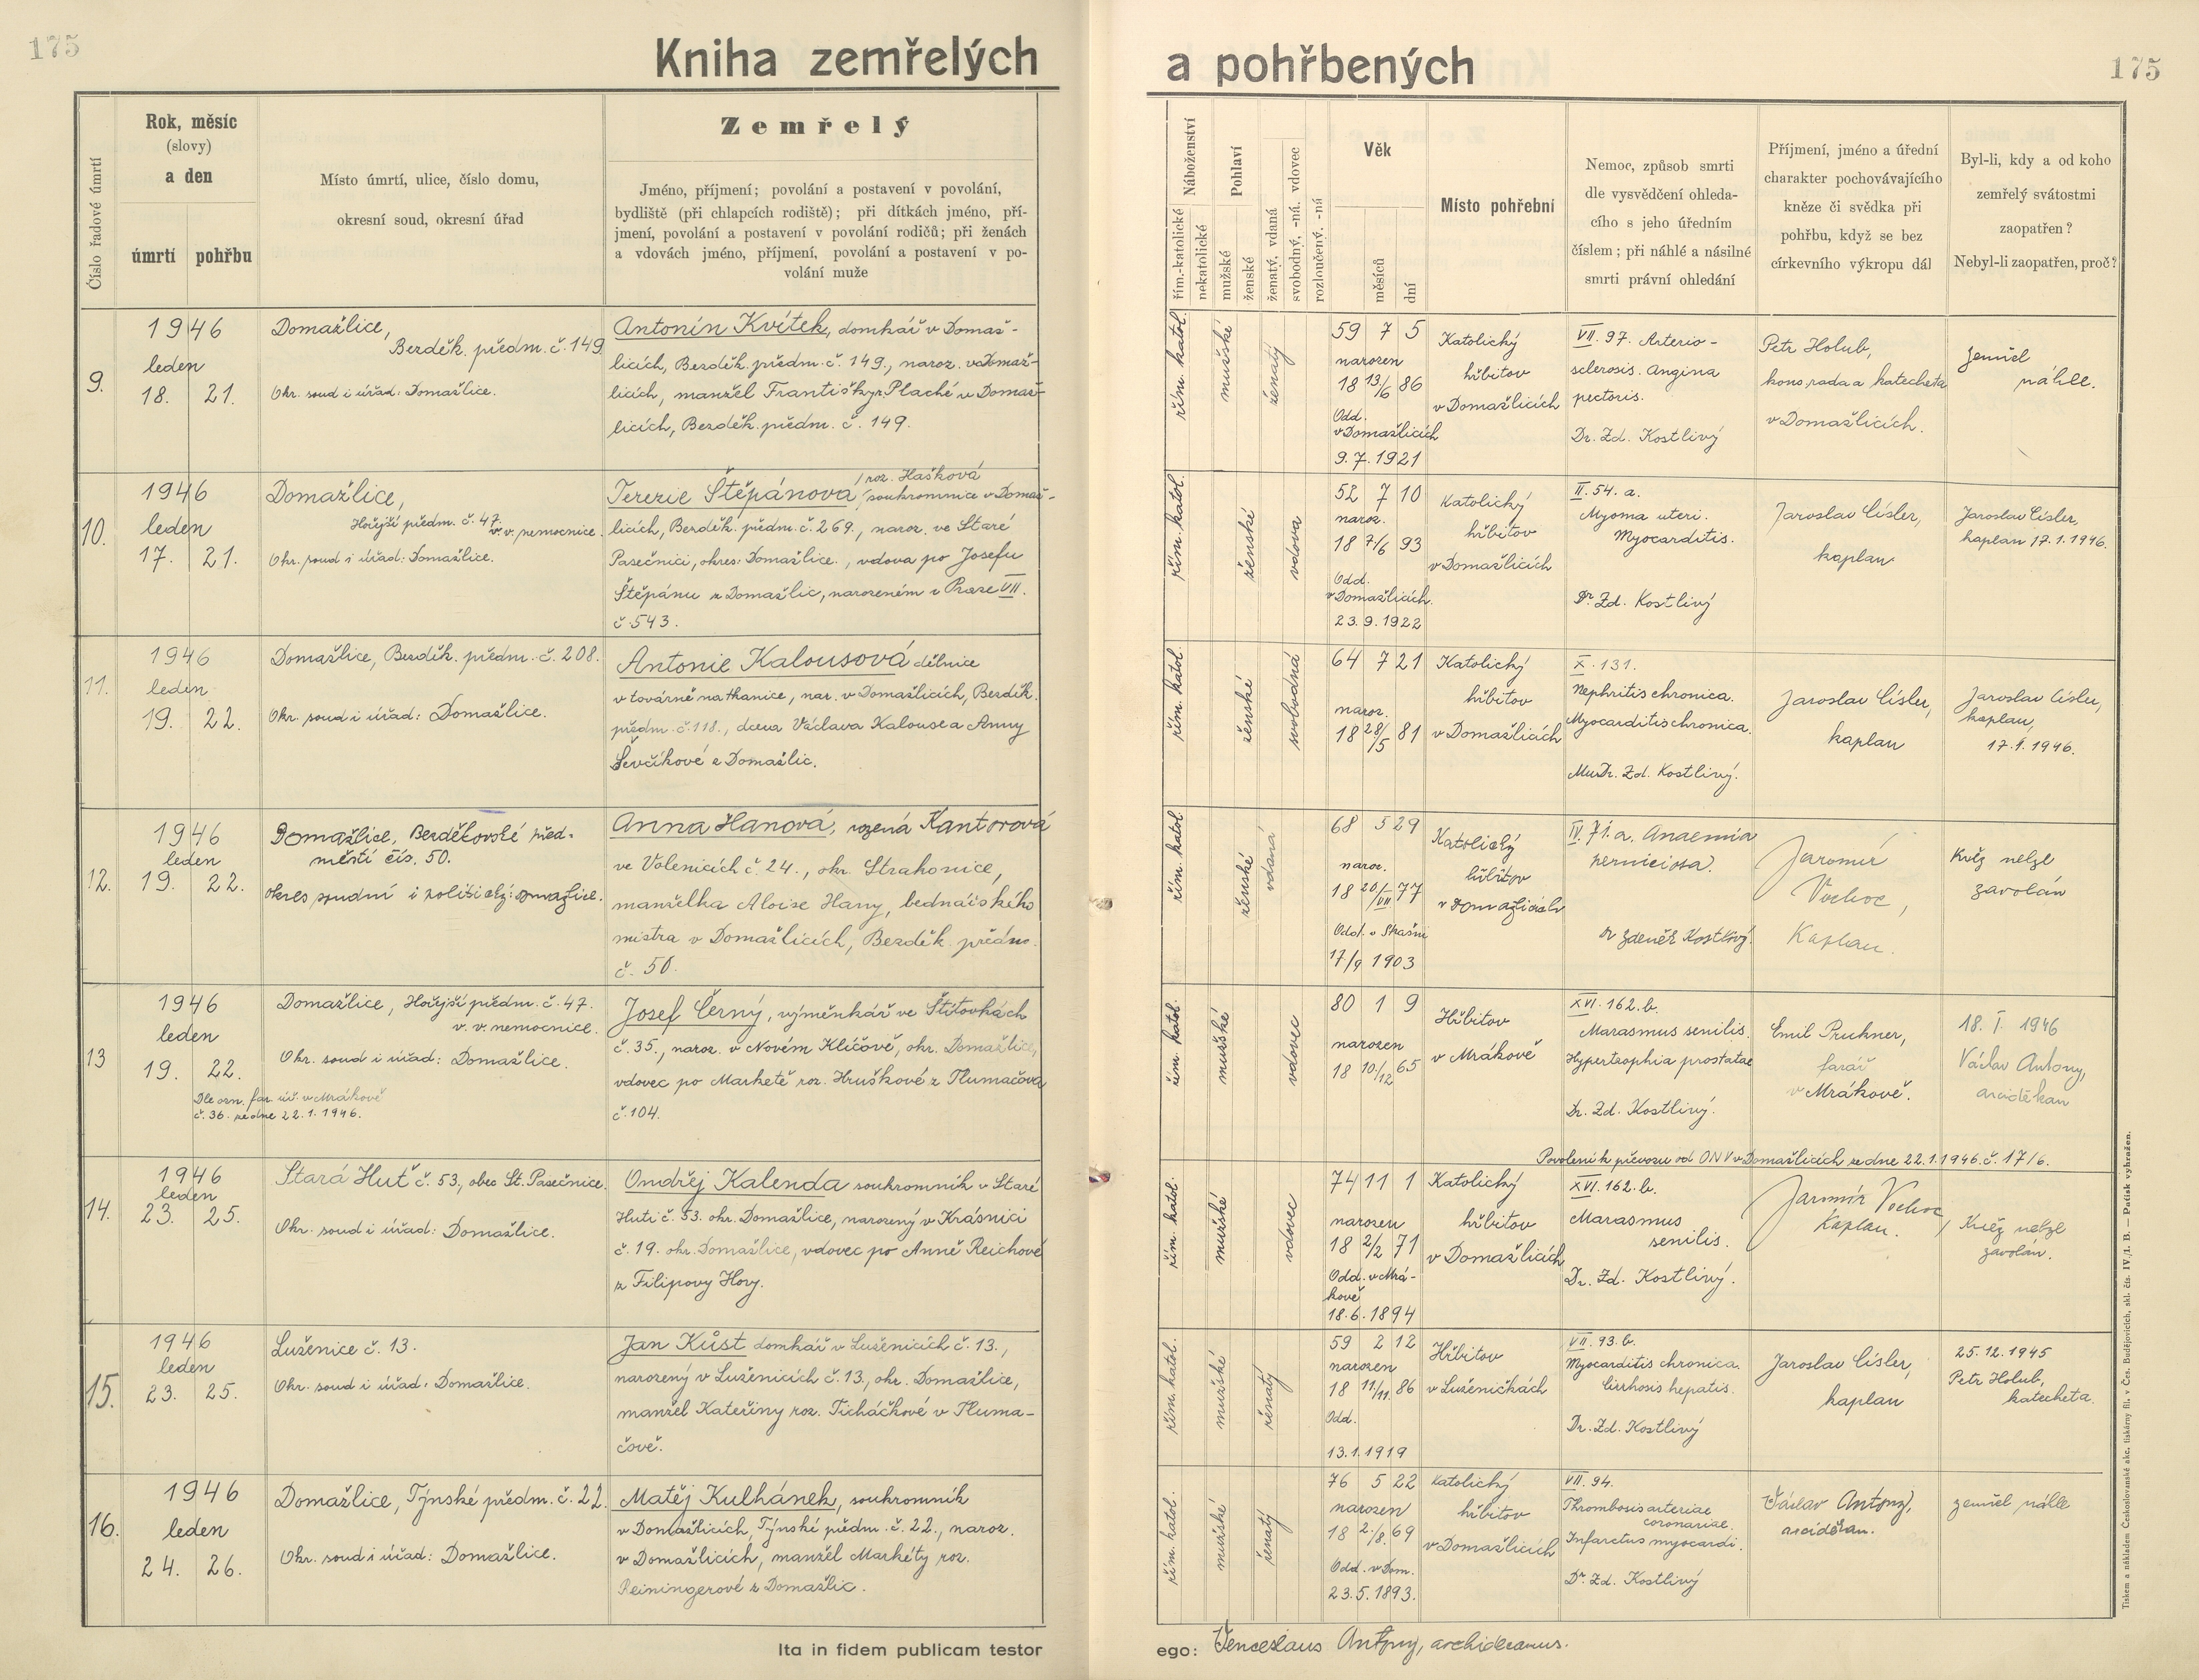 175
Kniha zemřelých
a pohřbených
175
Číslo řadové úmrtí
Rok, měsíc
(slovy)
a den
úmrtí pohřbu
Místo úmrtí, ulice, číslo domu,
okresní soud, okresní úřad
Zemřelý
Jméno, příjmení; povolání a postavení v povolání,
bydliště (při chlapcích rodiště); při dítkách jméno, pří-
jmení, povolání a postavení v povolání rodičů; při ženách
a vdovách jméno, příjmení, povolání a postavení v po-
volání muže
Náboženství
řím.-katolické
nekatolické
Pohlaví
mužské
ženské
ženatý, vdaná
svobodný, -ná. vdovec
rozloučený. -ná
Věk
měsíců
dní
Místo pohřební
Nemoc, způsob smrti
dle vysvědčení ohleda-
cího s jeho úředním
číslem; při náhlé a násilné
smrti právní ohledání
Příjmení, jméno a úřední
charakter pochovávajícího
kněze či svědka při
pohřbu, když se bez
církevního výkropu dál
Byl-li, kdy a od koho
zemřelý svátostmi
zaopatřen?
Nebyl-li zaopatřen, proč?
9.
1946
leden
18. 21.
Domažlice,
Bezděk. předm. č. 149
Okr. soud i úřad: Domažlice.
Antonín Kvítek, domkář v Domaž-
licích, Bezděk. předm. č. 149., naroz. v Domaž-
licích, manžel Františky r. Plaché v Domaž-
licích, Bezděk. předm. č. 149.
řím. katol.
mužské
ženatý
59 7 5
narozen
18 13/6 86
Odd.
v Domažlicích
9.7.1921
Katolický
hřbitov
v Domažlicích
VII. 97. Arterio-
sclerosis. Angina
pectoris.
Dr. Zd. Kostlivý
Petr Holub,
kons. rada a katecheta
v Domažlicích.
Zemřel
náhle.
10.
1946
leden
17. 21.
Domažlice,
Hořejší předm. č. 47.
v. v. nemocnice.
Okr. soud i úřad: Domažlice.
roz. Hašková
Terezie Štěpánova, soukromnice v Domaž-
licích, Bezděk. předm. č. 269., naroz. ve Staré
Pasečnici, okres: Domažlice., vdova po Josefu
Štěpánu z Domažlic, narozeném v Praze VII.
č. 543.
řím. katol.
ženské
vdova
52 7 10
naroz.
18 7/6 93
Odd.
v Domažlicích.
23.9.1922
Katolický
hřbitov
v Domažlicích
II. 54. a.
Myoma uteri.
Myocarditis.
Dr. Zd. Kostlivý
Jaroslav Císler,
kaplan
Jaroslav Císler,
kaplan 17.1.1946.
11.
1946
leden
19. 22.
Domažlice, Bezděk. předm. č. 208.
Okr. soud i úřad: Domažlice.
Antonie Kalousová dělnice
v továrně na tkanice, nar. v Domažlicích, Bezděk.
předm. č. 118., dcera Václava Kalouse a Anny
Ševčíkové z Domažlic.
řím. katol.
ženské
svobodná
64 7 21
naroz.
18 28/5 81
Katolický
hřbitov
v Domažlicích
X. 131.
Nephritis chronica.
Myocarditis chronica.
MuDr. Zd. Kostlivý.
Jaroslav Císler,
kaplan
Jaroslav Císler,
kaplan,
17.1.1946.
12.
1946
leden
19. 22.
Domažlice, Bezděkovské před-
městí čís. 50.
okres soudní i politický: Domažlice.
Anna Hanová, rozená Kantorová
ve Volenicích č. 24., okr. Strakonice,
manželka Aloise Hany, bednářského
mistra v Domažlicích, Bezděk. předm.
č. 50.
řím. katol
ženské
vdaná
68 5 29
naroz.
18 20/VII 77
Odd. v Skašni
17/9 1903
Katolický
hřbitov
v Domažlicích
IV. 71. a. Anaemia
perniciosa.
Dr Zdeněk Kostlivý.
Jaromír
Vochoc,
Kaplan.
Kněz nelze
zavolán
13
1946
leden
19. 22.
Dle ozn. far. úř. v Mrákově
č. 36. ze dne 22.1.1946.
Domažlice, Hořejší předm. č. 47.
v. v. nemocnice.
Okr. soud i úřad: Domažlice.
Josef Černý, výměnkář ve Štítovkách
č. 35., naroz. v Novém Klíčově, okr. Domažlice,
vdovec po Marketě roz. Hruškové z Tlumačova
č. 104.
řím. katol.
mužské
vdovec
80 1 9
narozen
18 10./12 65
Hřbitov
v Mrákově
XVI. 162. b.
Marasmus senilis.
Hypertrophia prostatae
Dr. Zd. Kostlivý.
Emil Pruhner,
farář
v Mrákově.
18. I. 1946
Václav Antony,
arciděkan
Povolení k převozu od ONV v Domažlicích ze dne 22.1.1946. č. 17/6.
14.
1946
leden
23. 25.
Stará Huť č. 53., obec St. Pasečnice.
Okr. soud i úřad: Domažlice.
Ondřej Kalenda soukromník v Staré
Huti č. 53. okr. Domažlice, narozený v Krásnici
č. 19. okr. Domažlice, vdovec po Anně Reichové
z Filipovy Hory.
řím. katol.
mužské
vdovec
74 11 1
narozen
18 2/2 71
Odd. v Mrá-
kově
18.6.1894
Katolický
hřbitov
v Domažlicích
XVI. 162. b.
Marasmus
senilis.
Dr. Zd. Kostlivý.
Jaromír Vochoc,
Kaplan.
Kněz nelze
zavolán.
15.
1946
leden
23. 25.
Luženice č. 13.
Okr. soud i úřad: Domažlice.
Jan Kůst domkář v Luženicích č. 13.,
narozený v Luženicích č. 13., okr. Domažlice,
manžel Kateřiny roz. Ticháčkové v Tluma-
čově.
řím. katol.
mužské
ženatý
59 2 12
narozen
18 11/11. 86
Odd.
13.1.1919
Hřbitov
v Luženičkách
VII. 93. b.
Myocarditis chronica.
Cirrhosis hepatis.
Dr. Zd. Kostlivý
Jaroslav Císler,
kaplan
25.12.1945
Petr Holub,
katecheta.
16.
1946
leden
24. 26.
Domažlice, Týnské předm. č. 22.
Okr. soud i úřad: Domažlice.
Matěj Kulhánek, soukromník
v Domažlicích, Týnské předm. č. 22., naroz.
v Domažlicích, manžel Markéty roz.
Reiningerové z Domažlic.
řím. katol.
mužské
ženatý
76 5 22
narozen
18 2./8. 69
Odd. v Dom.
23.5.1893.
Katolický
hřbitov
v Domažlicích
VII. 94.
Thrombosis arteriae
coronariae.
Infarctus myocardi.
Dr. Zd. Kostlivý
Václav Antony,
arciděkan.
zemřel náhle
Ita in fidem publicam testor
ego: Venceslaus Antony, archidecanus.
Tiskem a nákladem Československé akc. tiskárny fil. v Čes. Budějovicích, skl. čís. IV./1. B. — Patisk vyhražen.